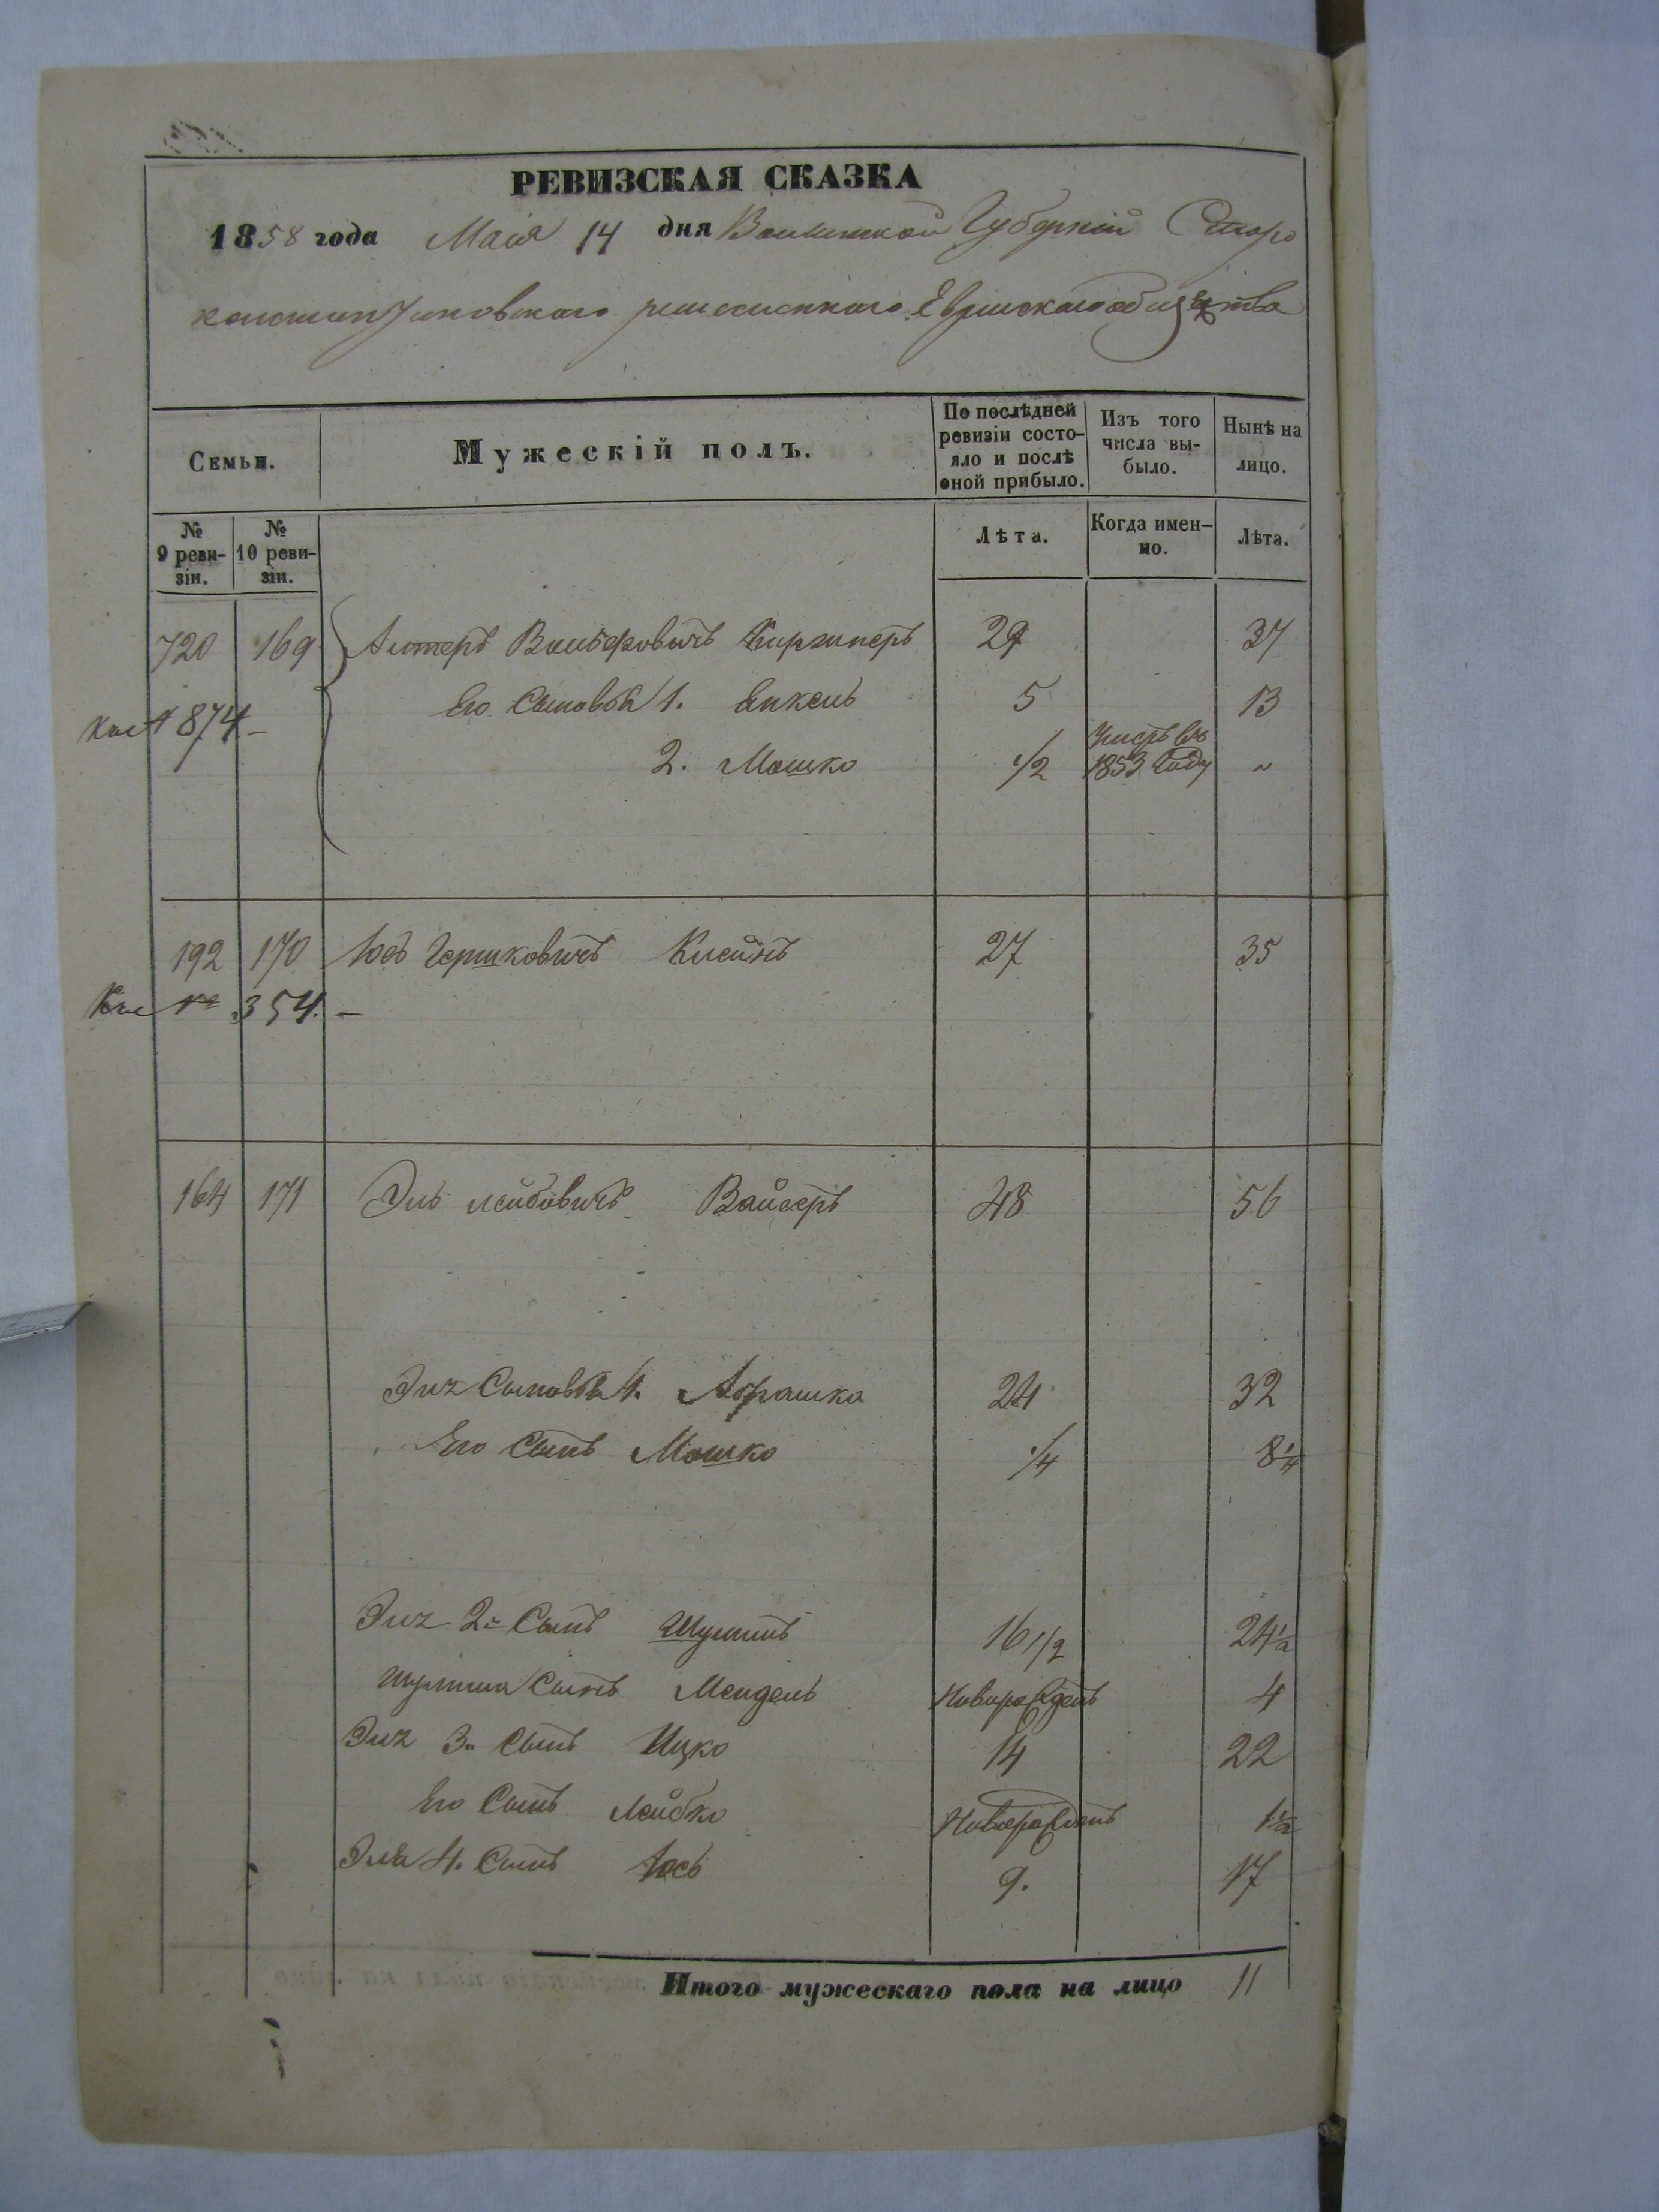 РЕВИЗСКАЯ СКАЗКА
1858 года Маія 14 дня Волынской Губерніи Старо
константиновского ремесленного Еврейского общества
Семьи.
Мужескій полъ.
По послѣдней ревизіи состояло и послѣ оной прибыло.
Изъ того числа выбыло.
Нынѣ на лицо.
№ 9 ревизіи.
№ 10 ревизіи.
Лѣта.
Когда именно.
Лѣта.
720 169 Алтеръ Вольфовичъ 29 37
Его Сыновья 1. 5 13
874 –
2. Мошко 1/2 Умеръ въ 1853 году "
192 170 Іось Гершковичъ Клейнъ 27 35
№ 354. –
164 171 Эль Лейбовичъ Вайсеръ 48 56
Эля Сыновья 1. Абрашка 24 32
Его Сынъ Мошко 1/4 8 1/4
Эля 2й Сынъ Шулимъ 16 1/2 24 1/2
Шулима Сынъ Мендель Новорожденъ 4
Эля 3й Сынъ Ицко 14 22
Его Сынъ Лейбко Новорожденъ 1 1/2
Эля 4. Сынъ Іось 9. 17
Итого мужескаго пола на лицо 11